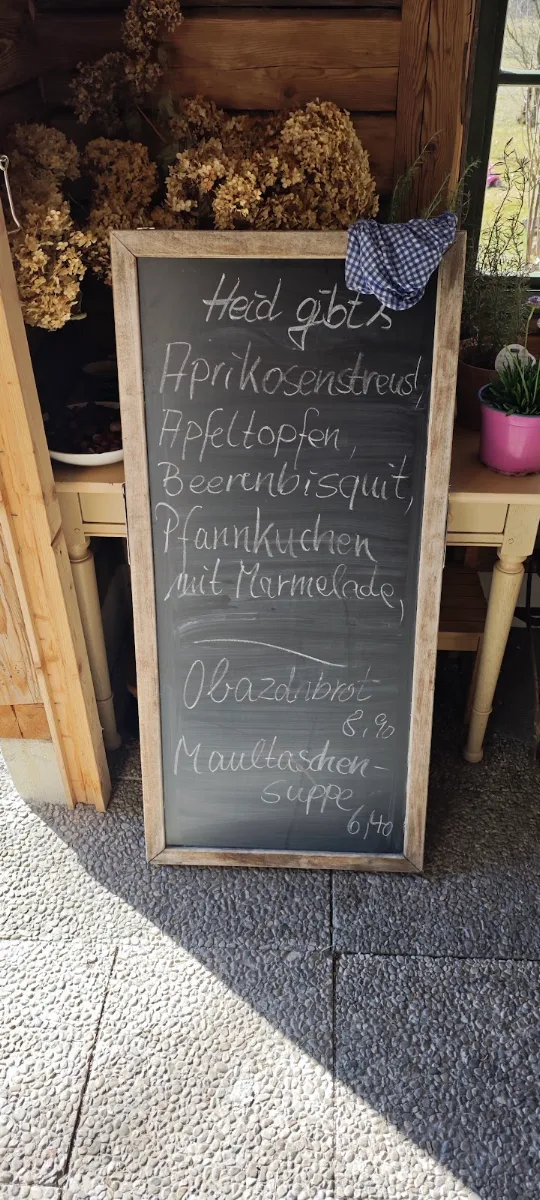 Heid gibt's
Aprikosenstreusl,
Apfeltopfen,
Beerenbisquit,
Pfannkuchen
mit Marmelade,
Obazdnbrot
8,90
Maultaschen-
suppe
6,40